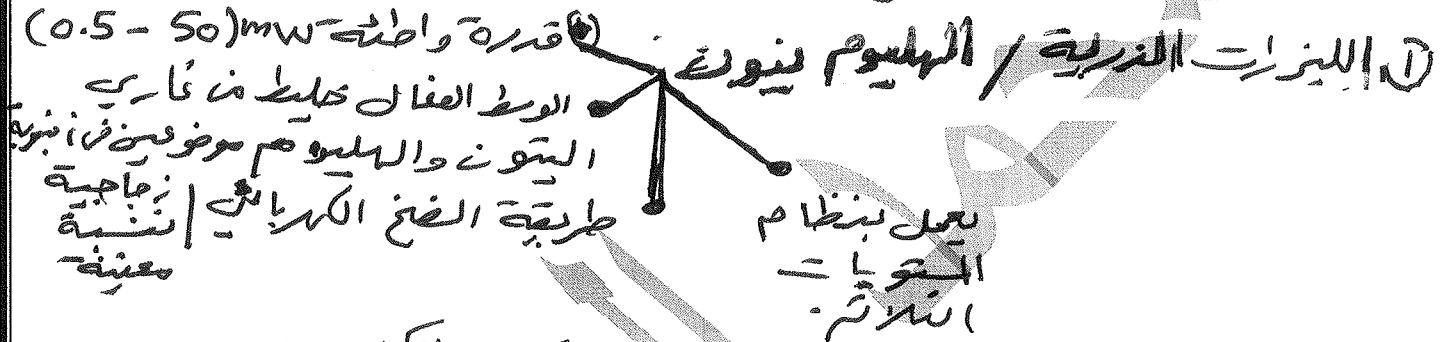 ① الليزرات الذرية / الهليوم نيون
قدرة واطئة (0.5 - 50)mW
الوسط الفعال خليط من غازي
النيون والهليوم موضوعين في انبوبة
زجاجية
بنسبة
معينة
طريقة الضخ الكهربائي
يعمل بنظام
المستويات
الثلاثة.